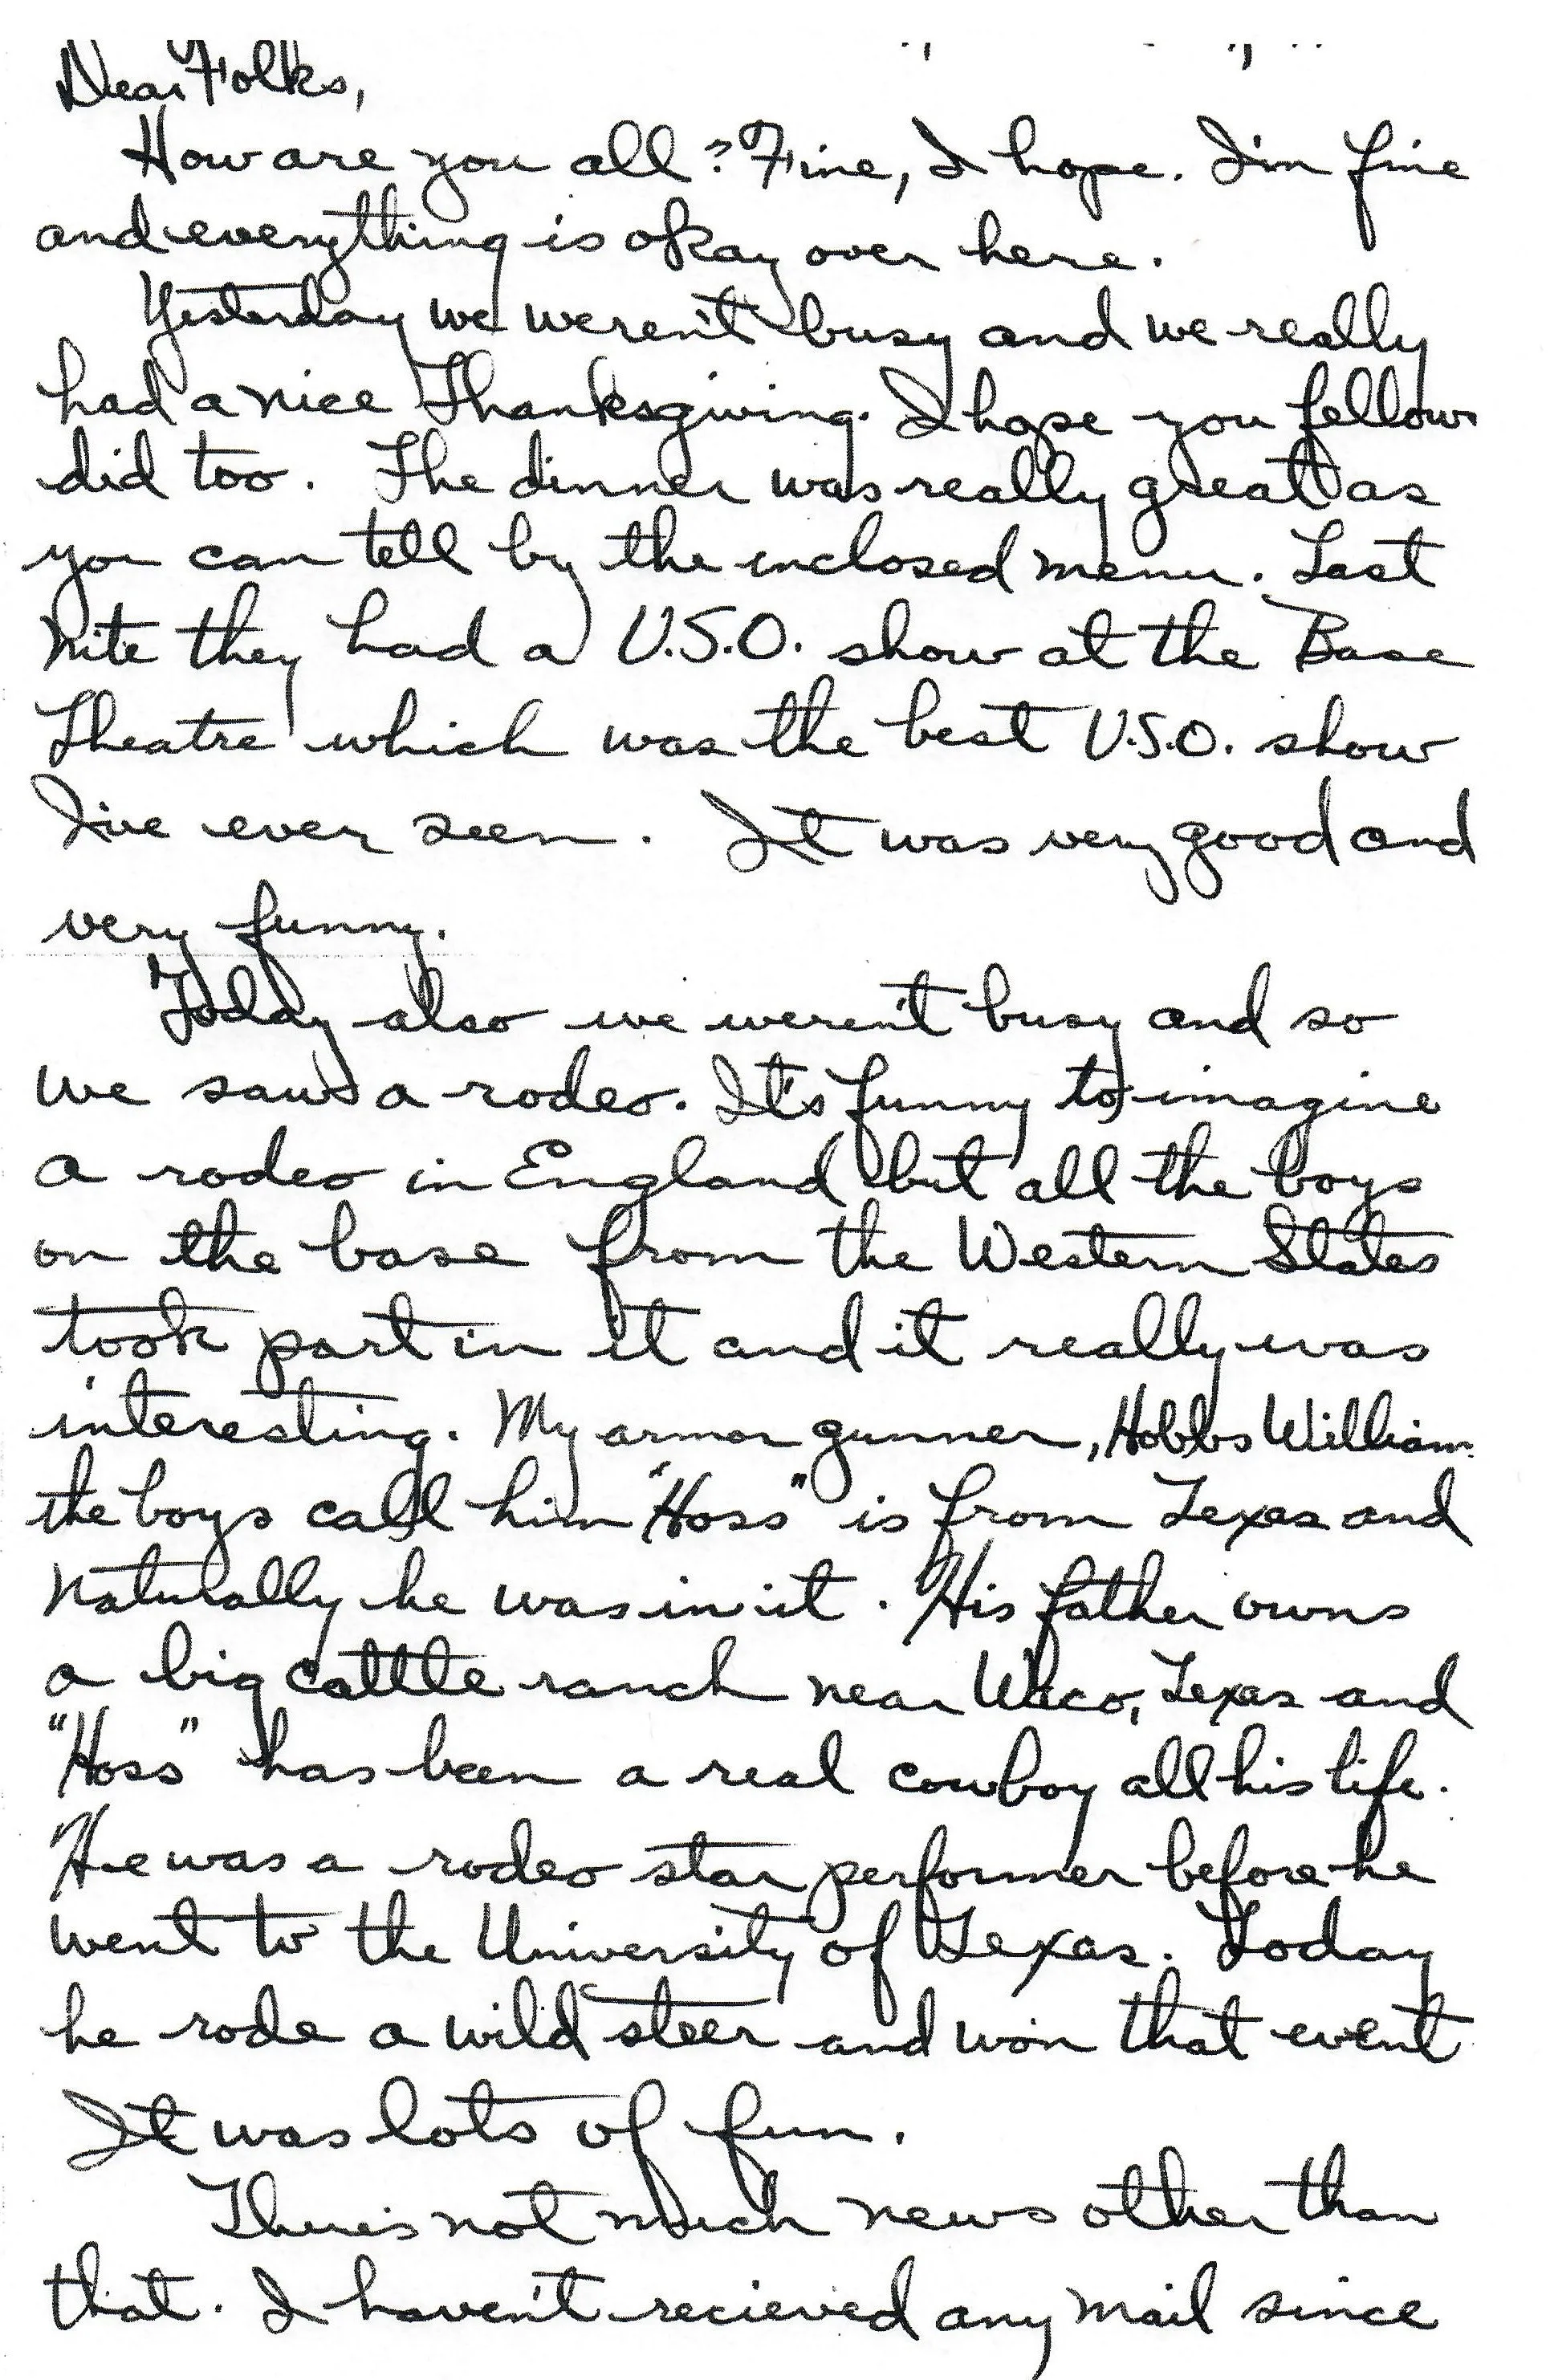 Dear Folks,
How are you all? Fine, I hope. I'm fine
and everything is okay over here.
Yesterday we weren't busy and we really
had a nice Thanksgiving. I hope you fellows
did too. The dinner was really great as
you can tell by the inclosed menu. Last
nite they had a U.S.O. show at the Base
Theatre which was the best U.S.O. show
I've ever seen. It was very good and
very funny.
Today also we weren't busy and so
we saw a rodeo. It's funny to imagine
a rodeo in England but all the boys
on the base from the Western States
took part in it and it really was
interesting. My armor gunner, Hobbs William
the boys call him "Hoss" is from Texas and
naturally he was in it. His father owns
a big cattle ranch near Waco, Texas and
"Hoss" has been a real cowboy all his life.
He was a rodeo star performer before he
went to the University of Texas. Today
he rode a wild steer and won that event
It was lots of fun.
There's not much news other than
that. I haven't recieved any mail since